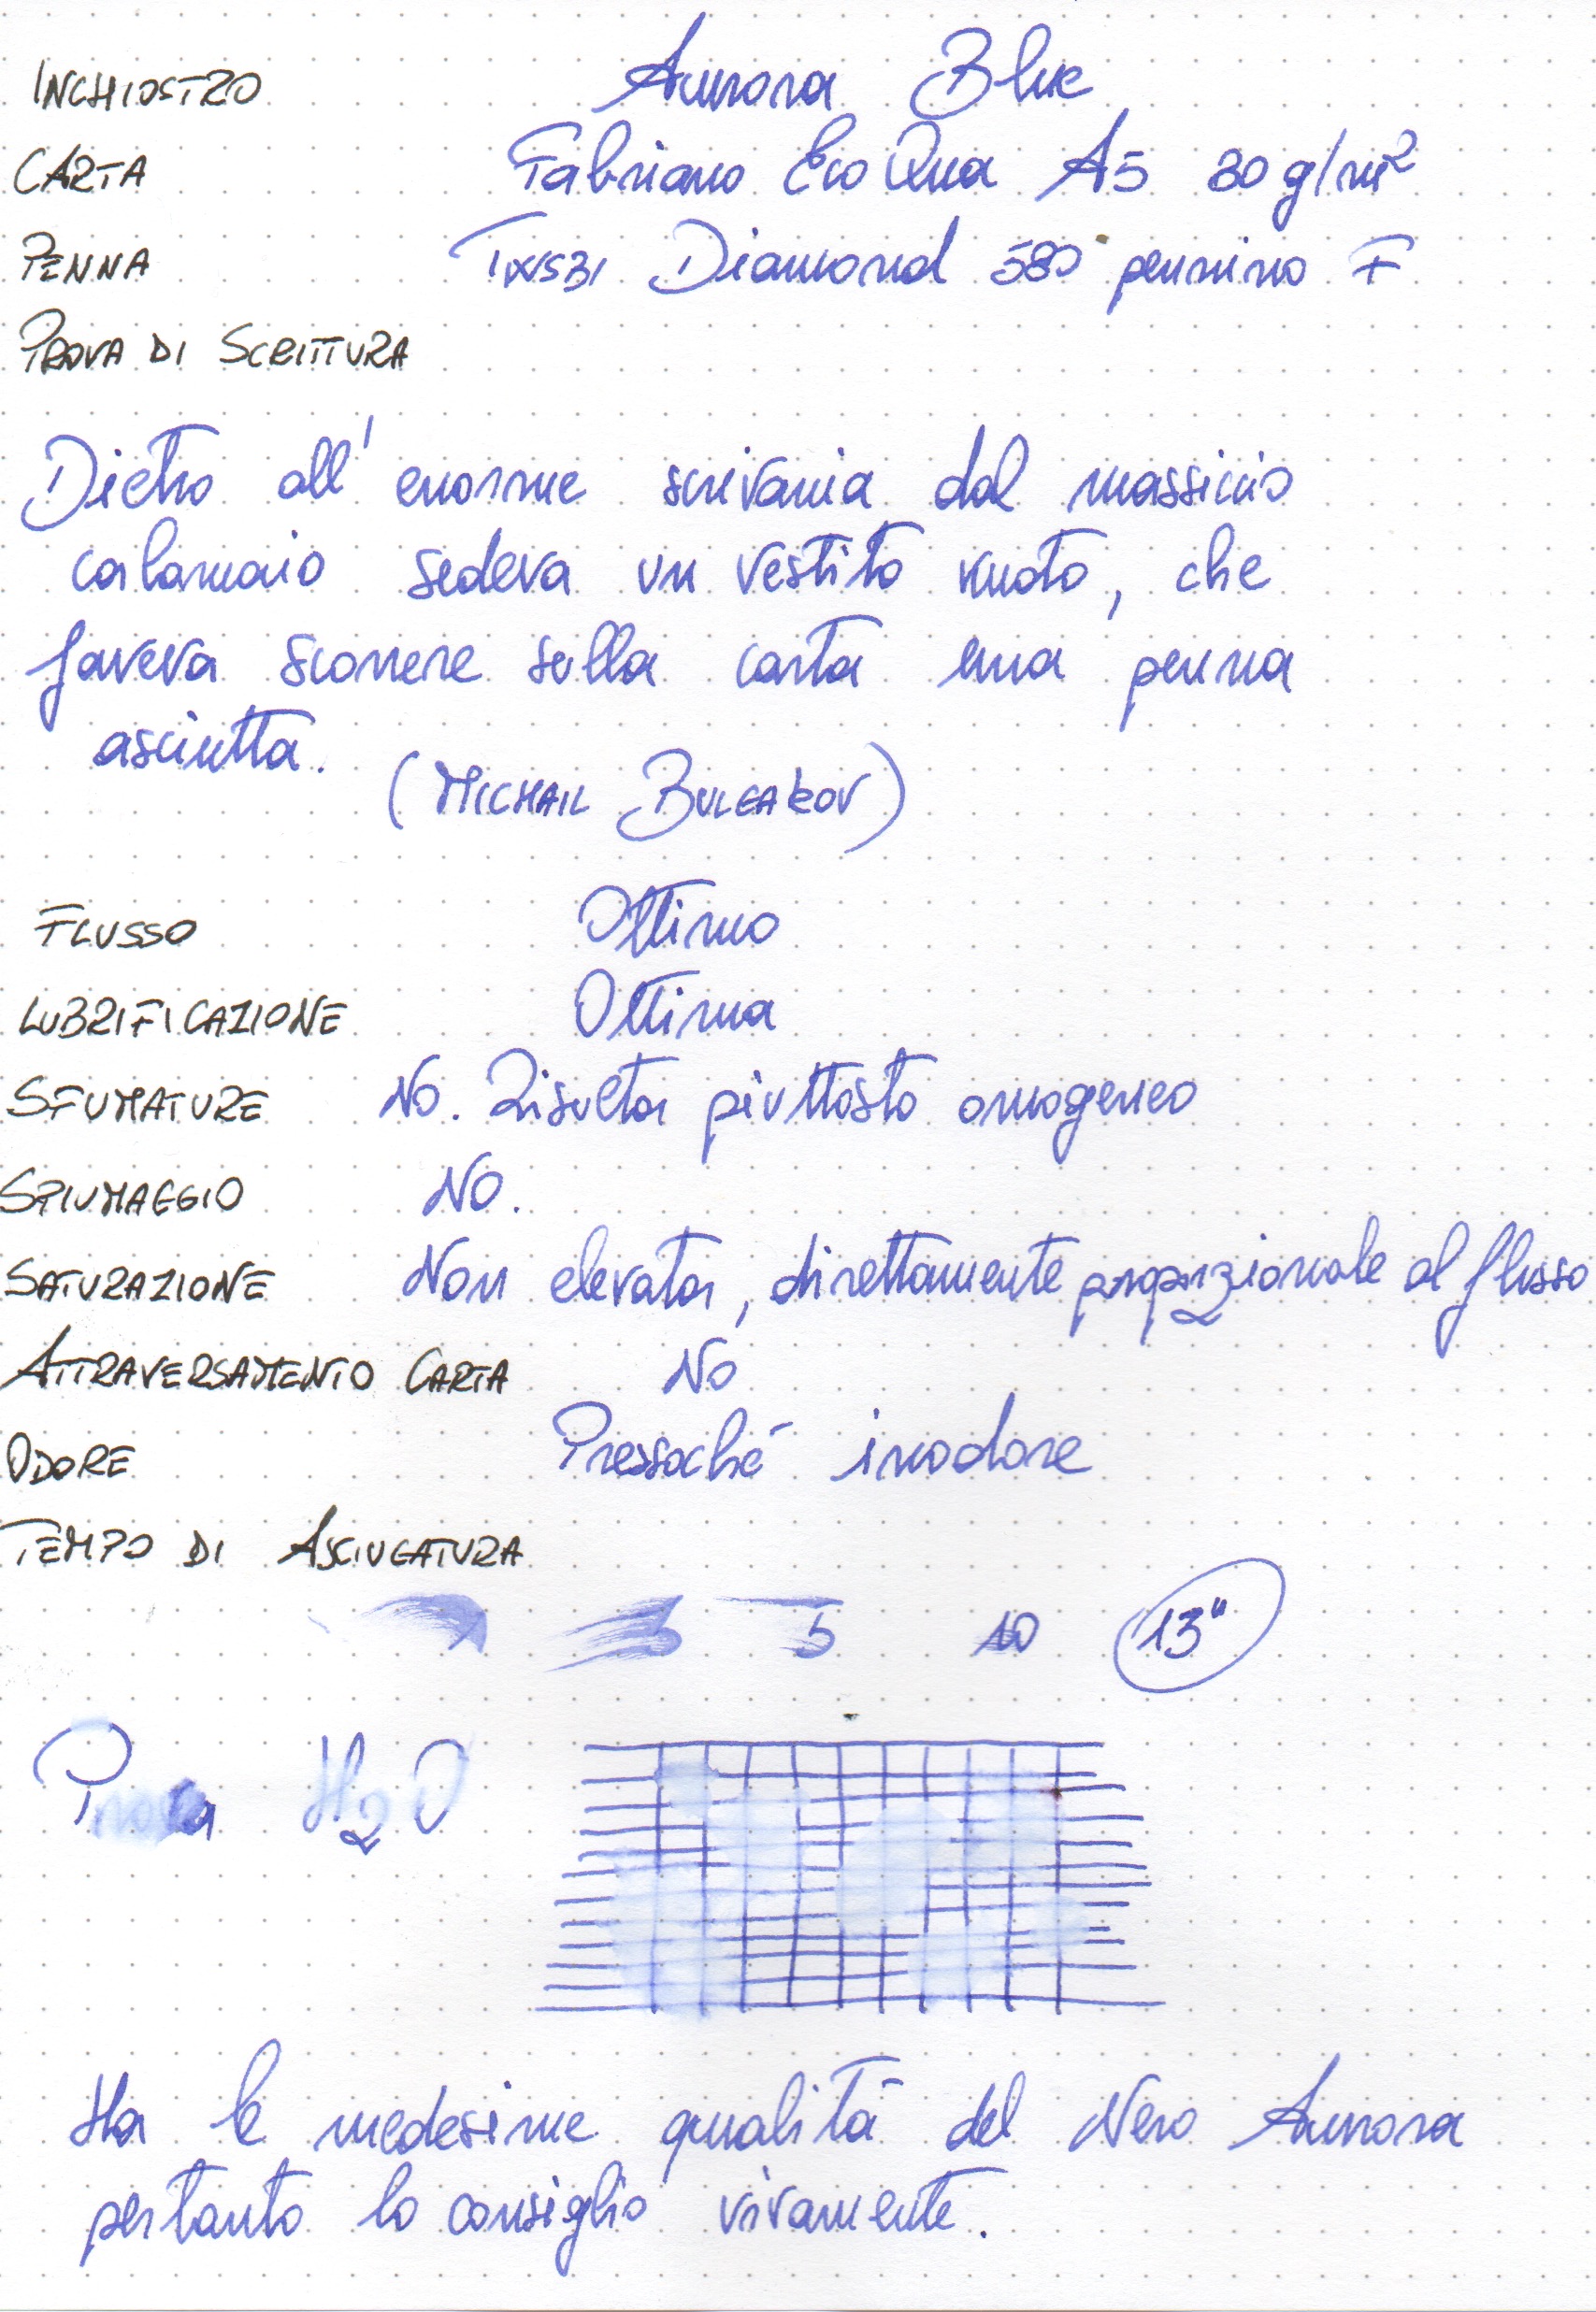 INCHIOSTRO Aurora Blue
CARTA Fabriano EcoQua A5 80 g/m²
PENNA TWSBI Diamond 580 pennino F
PROVA DI SCRITTURA
Dietro all'enorme scrivania dal massiccio
calamaio sedeva un vestito vuoto, che
faceva scorrere sulla carta una penna
asciutta.
(MICHAIL BULGAKOV)
FLUSSO Ottimo
LUBRIFICAZIONE Ottima
SFUMATURE No. Risulta piuttosto omogeneo
SPIUMAGGIO NO.
SATURAZIONE Non elevata, direttamente proporzionale al flusso
ATTRAVERSAMENTO CARTA No
ODORE Pressoché inodore
TEMPO DI ASCIUGATURA
1 3 5 10 13"
Prova H2O
Ha le medesime qualità del Nero Aurora
pertanto lo consiglio vivamente.